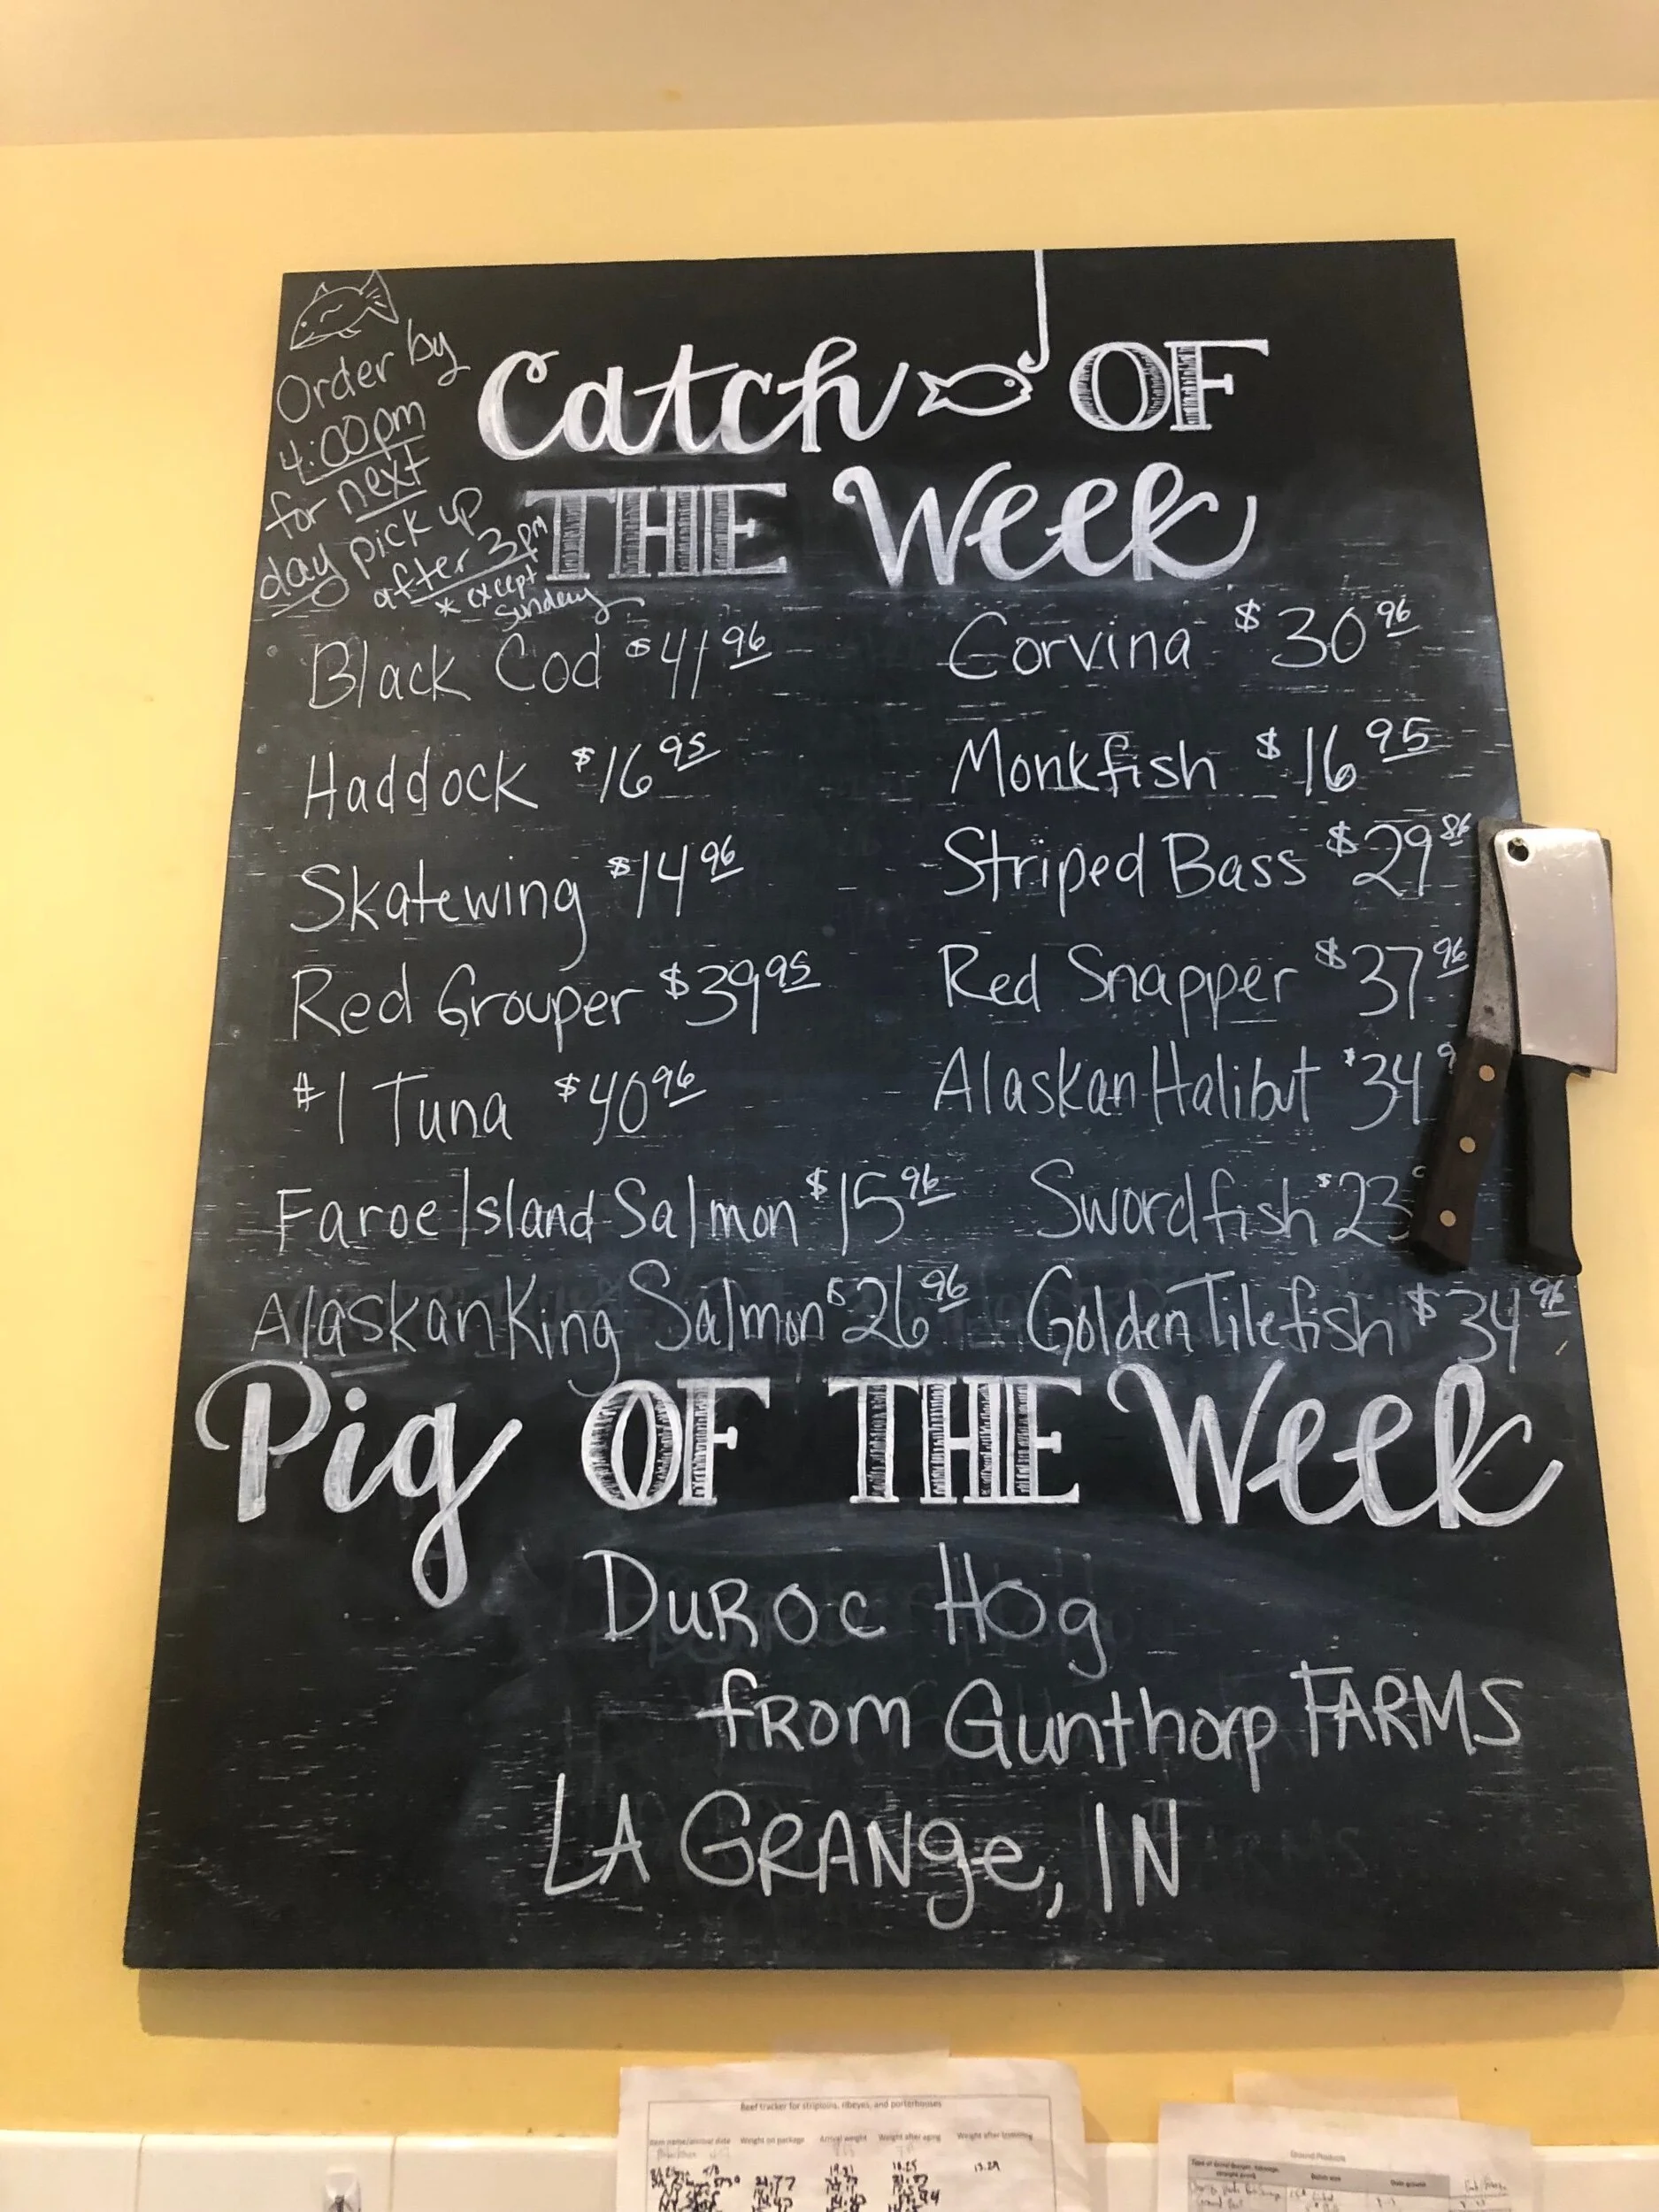 Order by
4:00pm
for next
day pick up
after 3pm
* except
Sunday
Catch OF
THE Week
Black Cod $41 96
Haddock $16 95
Skatewing $14 96
Red Grouper $39 95
#1 Tuna $40 96
Faroe Island Salmon $15 96
Alaskan King Salmon $26 96
Corvina $30 96
Monkfish $16 95
Striped Bass $29 86
Red Snapper $37 96
Alaskan Halibut $34 9
Swordfish $23
Golden Tilefish $34 96
Pig OF THE Week
DuROc Hog
fROm Gunthorp FARMS
LA GRANge, IN
Beef tracker for striploins, ribeyes, and porterhouses
Item name/arrival date Weight on package Arrival weight Weight after aging Weight after trimming
13.29
Ground Products